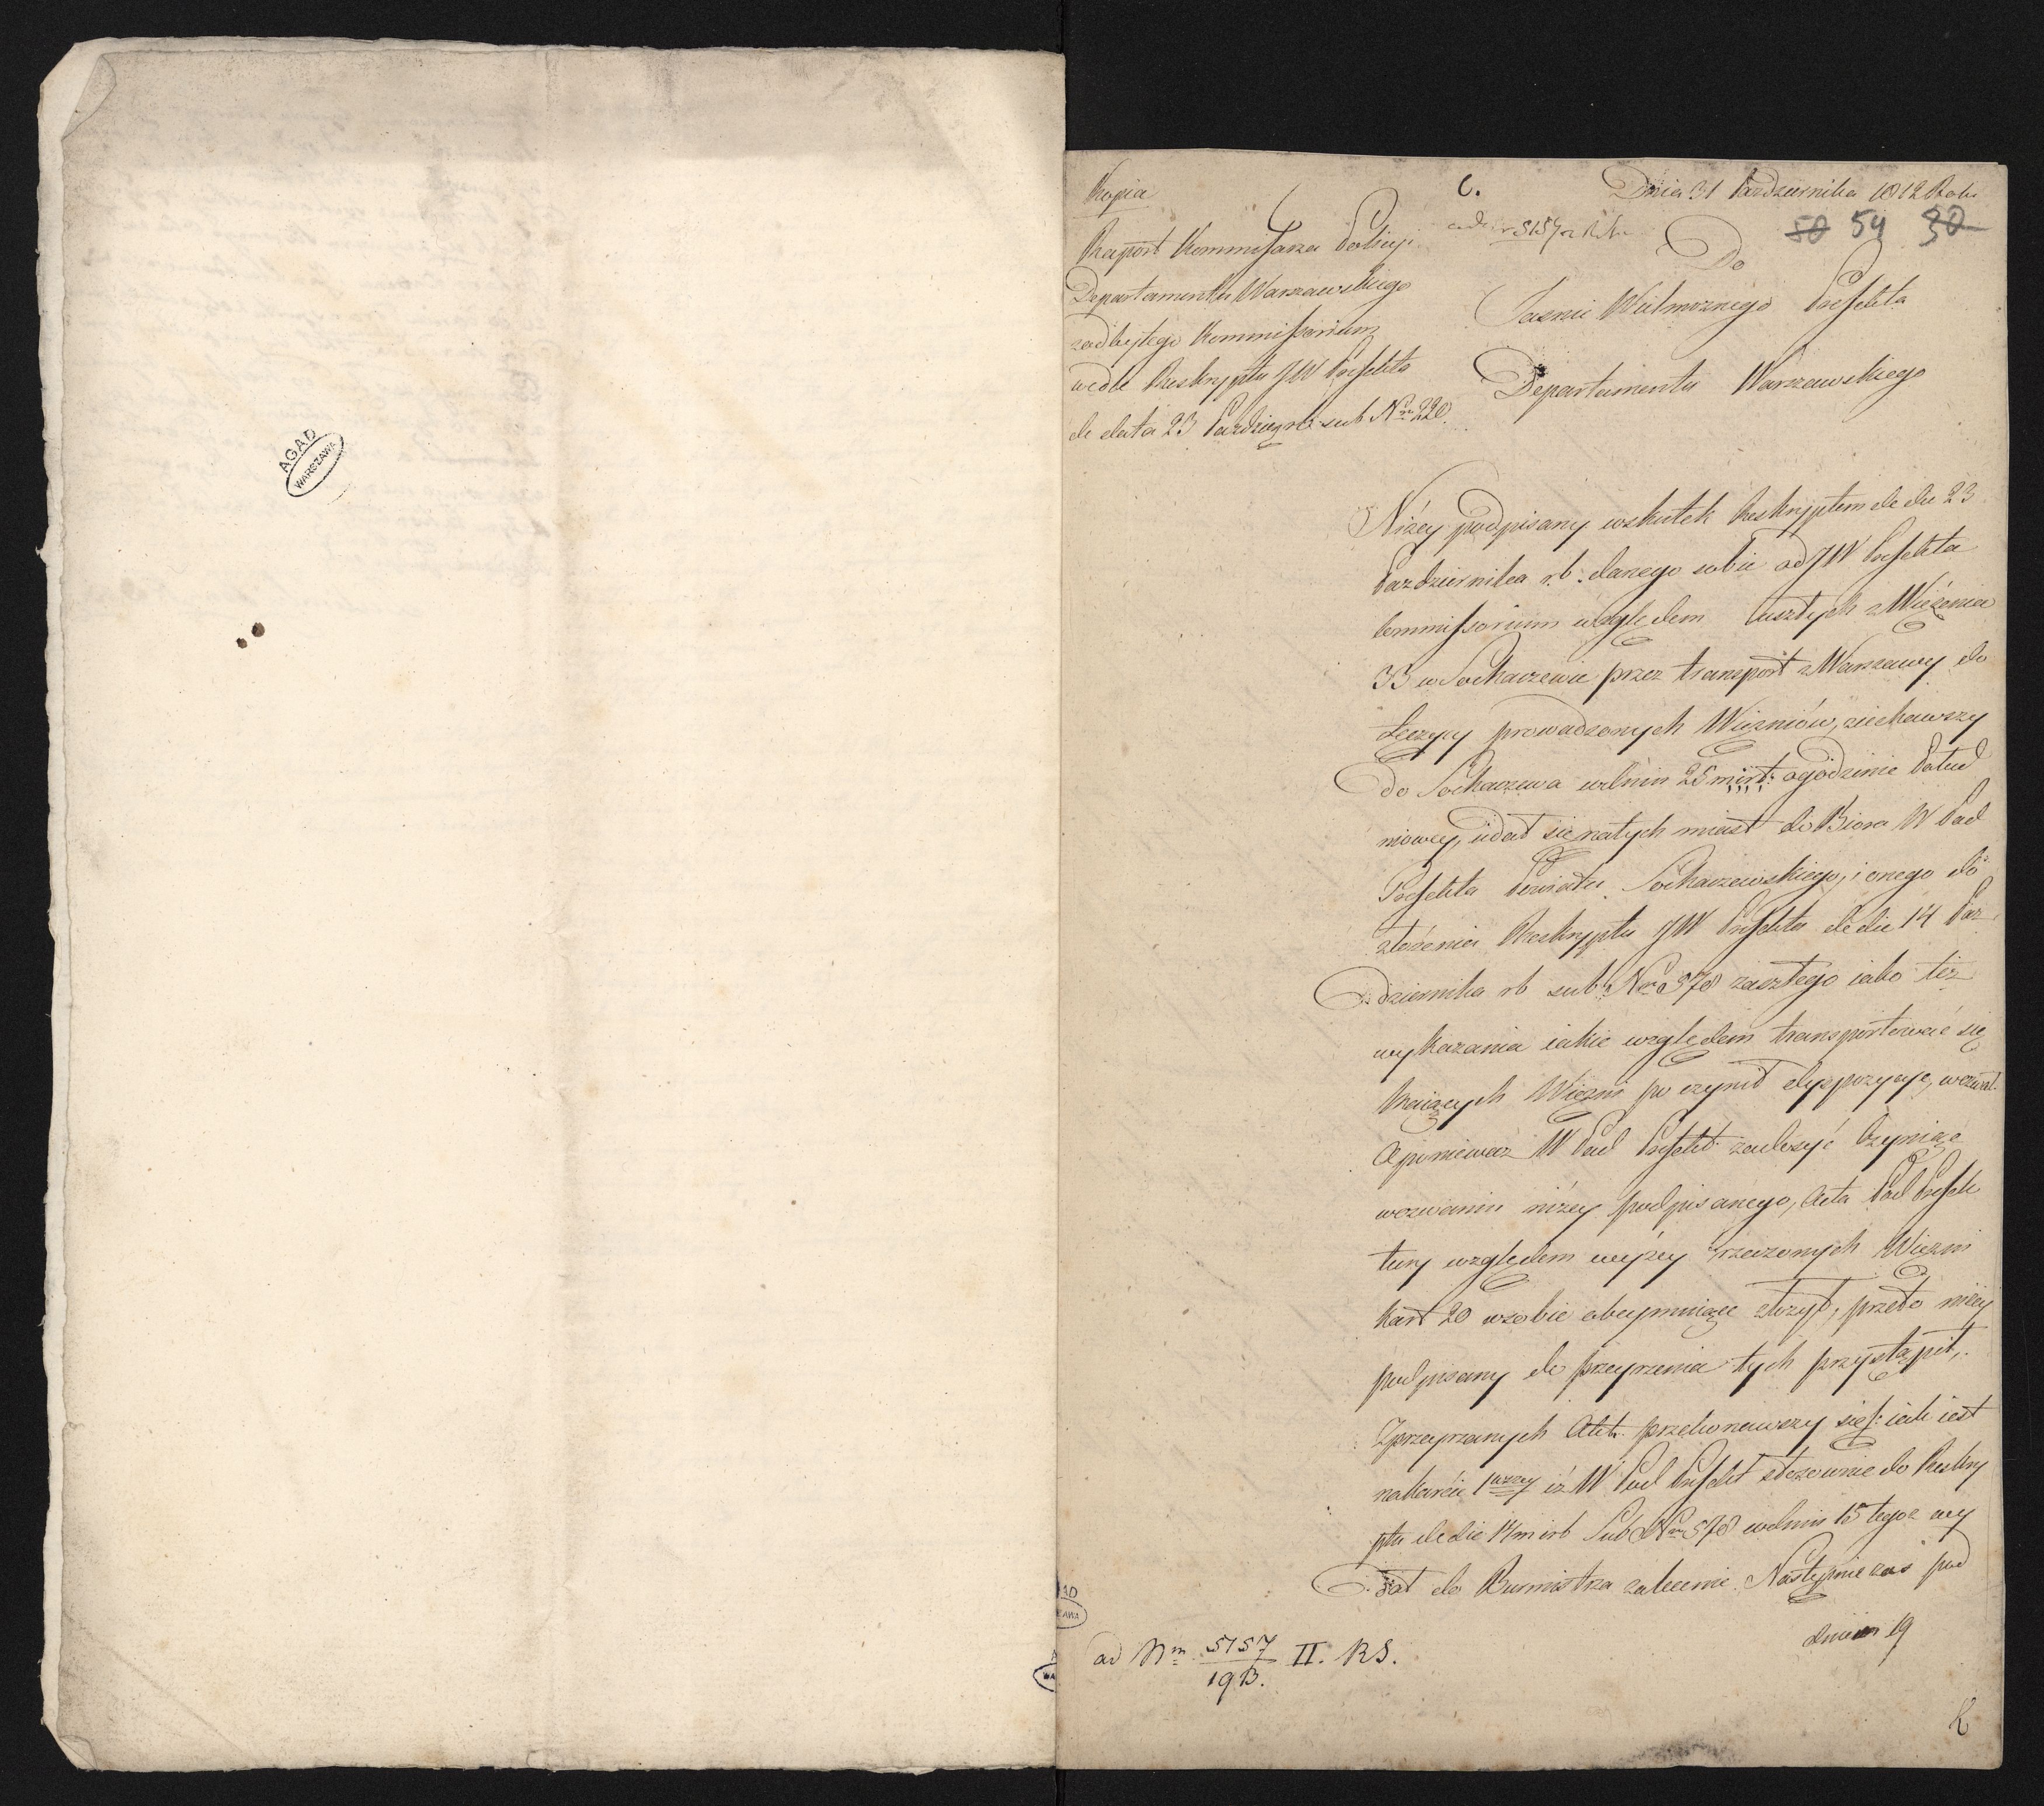 AGAD
WARSZAWA
Kopia
C.
Dnia 31 Pazdziernika 1812 Roku
50 54 30
Raport Kommissarza Policyi
Departamentu Warszawskiego
zodbytego Kommissorium
wedle Reskryptu JW Prefekta
de dato 23 Pazdziern: sub Nro 220.
ad 5157
Do
Jasnie Wielmoznego Prefekta
Departamentu Warszawskiego
Niżey podpisany wskutek Reskryptem de die 23
Pazdziernika r.b. danego sobie od JW Prefekta
Commissorium względem uszłych z Więzienia
33 w Sochaczewie przez transport z Warszawy do
Łęczycy prowadzonych Więzniów, ziechawszy
do Sochaczewa w dniu 25 m. i r. t: o godzinie Połud
niowey, udał się natych miast do Biora W Pod
Prefekta Powiatu Sochaczewskiego, i onego do
złożenia Reskryptu JW Prefekta de die 14 Paz
dziernika rb sub Nro 578 zaszłego iako też
wykazania iakie względem transportować się
maiących Więzni po czynił dyspozycye, wezwał.
A ponieważ W Pod Prefekt zadosyć Czyniąc
wezwaniu niżey podpisanego, Acta Pod Prefek
tury względem wyżey rzeczonych Więzni
kart 20 w sobie obeymuiące złożył, przeto niżey
podpisany do przeyrzenia tych przystąpił,
Z przeyrzanych Akt: przekonawszy się /: iak iest
na karcie 1wszey iż W Pod Prefekt stosownie do Reskry
ptu de die 14 m i rb Sub Nro 578 w dniu 15 tegoż wy
dał do Burmistrza zalecenie. Następnie zaś pod
dniem 19
ad Nm 5157/19 B. II. RS.